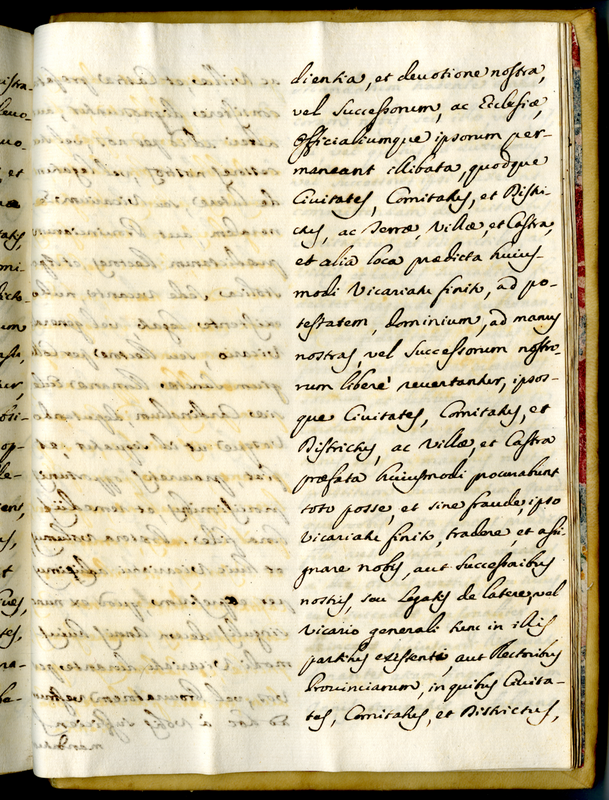 dientia, et deuotione nostra,
vel Successorum, ac Ecclesiæ,
Officialiumque ipsorum per-
maneant illibata, quodque
Ciuitates, Comitatus, et Distri-
ctus, ac Terræ, Villæ, et Castra,
et alia loca predicta huius-
modi Vicariatu finito, ad po-
testatem, dominium, ad manus
nostras, vel Successorum nostro-
rum liberè reuertantur, ipsos-
que Ciuitates, Comitatus, et
Districtus, ac Villæ, et Castra
præfata huiusmodi procurabunt
toto posse, et sine fraude, ipso
Vicariatu finito, tradere, et assi
gnare nobis, aut Successoribus
nostris, seu Legatis de latere, vel
Vicario generali tunc in illis
partibus existenti, aut Rectoribus
Prouinciarum, in quibus Ciuita-
tes, Comitatus, et Districtus,